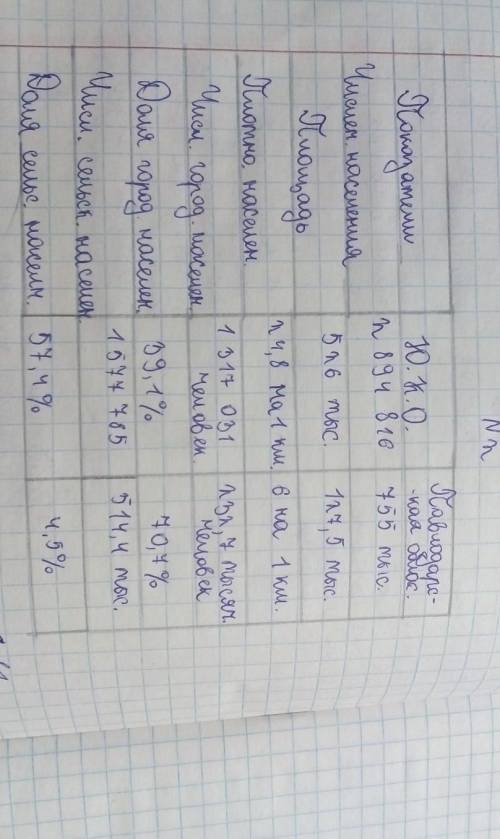 № 2
Показатели Ю.К.О. Павлодарс-
-кая облас.
Числен. населения 2 894 816 755 тыс.
Площадь 526 тыс. 127,5 тыс.
Плотно. населен. 24,8 на 1 км. 6 на 1 км.
Числ. город. населен. 1 317 031 232,7 тысяч
человек. человек
Доля город населен. 39,1% 70,7%
Числ. сельск. населен. 1577 785 514,4 тыс.
Доля сельс. населн. 57,4% 4,5%